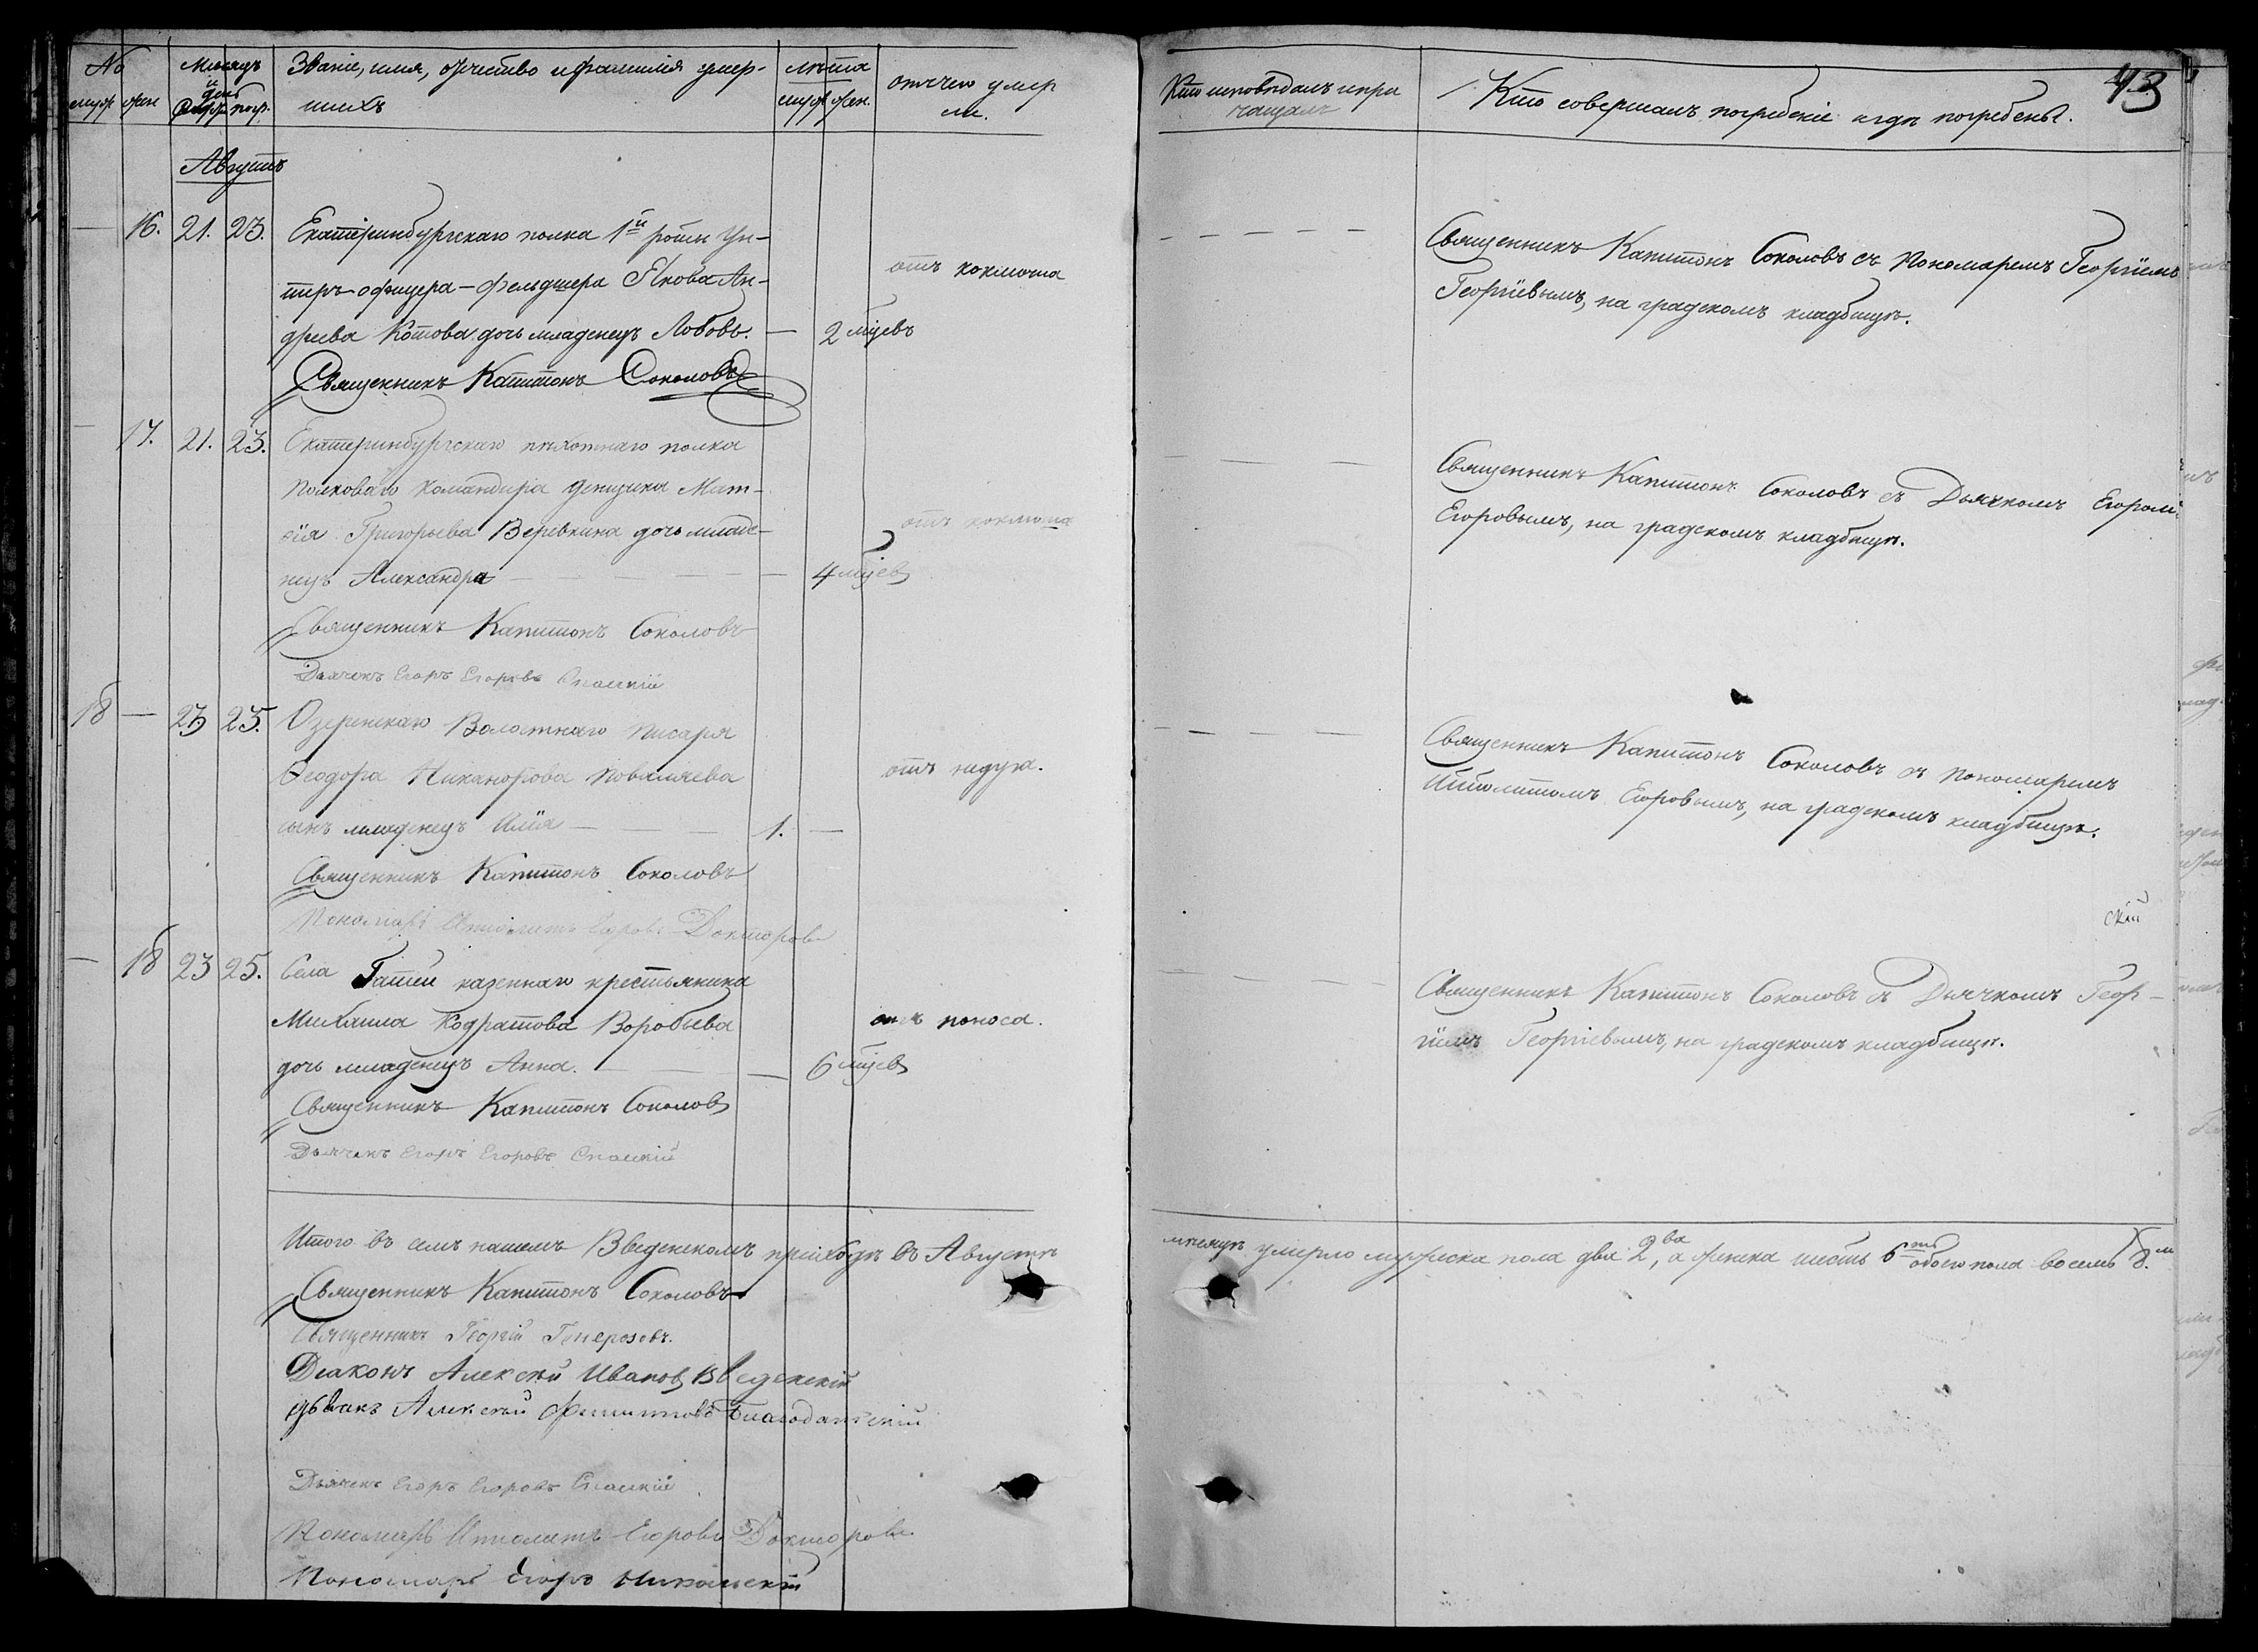 №
муж. жен.
Месяцъ
и
день
смер. погр.
Званіе, имя, отчество и фамилія умер-
шихъ
лѣта
муж. жен.
отъ чего умер
ли.
Кто исповѣдалъ и прі
чащалъ
Кто совершалъ погребеніе и гдѣ погребены.
43
Августъ
— 16. 21. 23. Екатеринбургскаго полка 1й роты Ун-
теръ-офицера-фельдшера Якова Ан-
дреева Котова дочь младенецъ Любовь. — 2 мцевъ
отъ коклюша
Священникъ Капитонъ Соколовъ съ Пономаремъ Георгіемъ
Георгіевымъ, на градскомъ кладбищѣ.
Священникъ Капитонъ Соколовъ
— 17. 21. 23. Екатеринбургскаго пѣхотнаго полка
полковаго командира денщика Мат-
ѳія Григорьева Веревкина дочь младе-
нецъ Александра — 4 мцев
отъ коклюша
Священникъ Капитонъ Соколовъ съ Дьячкомъ Егоромъ
Егоровымъ, на градскомъ кладбищѣ.
Священникъ Капитонъ Соколовъ
Дьячекъ Егоръ Егоровъ Спасскій
18 — 23 25. Озеренскаго Волостнаго Писаря
Ѳеодора Никанорова
сынъ младенецъ Илія — 1. —
отъ недуга.
Священникъ Капитонъ Соколовъ съ Пономаремъ
Ипполитомъ Егоровымъ, на градскомъ кладбищѣ.
Священникъ Капитонъ Соколовъ
Пономарь Ипполитъ Егоровъ Докторовъ
скій
— 18 23 25. Села казеннаго крестьянина
Михаила Кодратова Воробьева
дочь младенецъ Анна. — 6 мцев
отъ поноса.
Священникъ Капитонъ Соколовъ съ Дьячкомъ Геор-
гіемъ Георгіевымъ, на градскомъ кладбищѣ.
Священникъ Капитонъ Соколовъ
Дьячекъ Егоръ Егоровъ Спасскій
Итого въ семъ нашемъ Введенскомъ приходѣ въ Августѣ мѣсяцѣ умерло мужеска пола два 2ва, а женска шесть 6ть обоего пола восемь 8.м
Священникъ Капитонъ Соколовъ
Священникъ Георгій
Діаконъ Алексѣй Иванов Введенскій
Алексѣй Филипповъ Благодатскій
Дьячекъ Егоръ Егоровъ Спасскій
Пономарь Ипполитъ Егоровъ Докторовъ
Пономарь Егоръ Никольскій